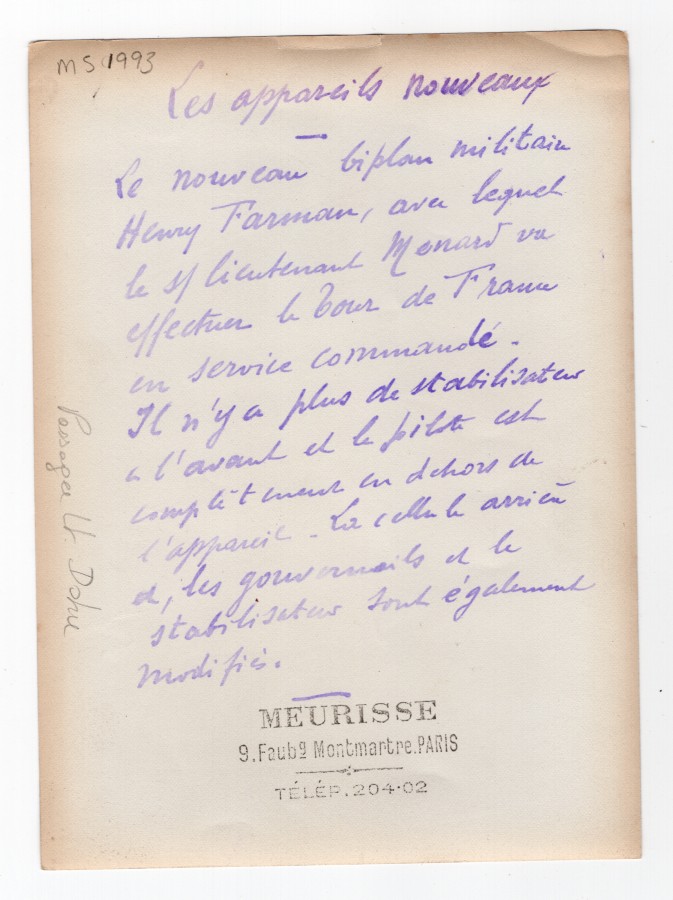 MS 1993
Les appareils nouveaux
Le nouveau biplan militaire
Henry Farman, avec lequel
le s/ lieutenant Menard va
effectuer le Tour de France
en service commandé.
Il n'y a plus de stabilisateur
a l'avant et le pilote est
complètement en dehors de
l'appareil - La cellule arrière
et, les gouvernails et le
stabilisateur sont également
modifiés.
MEURISSE
9. Faubg Montmartre. PARIS
TÉLÉP. 204-02
Passager Lt.